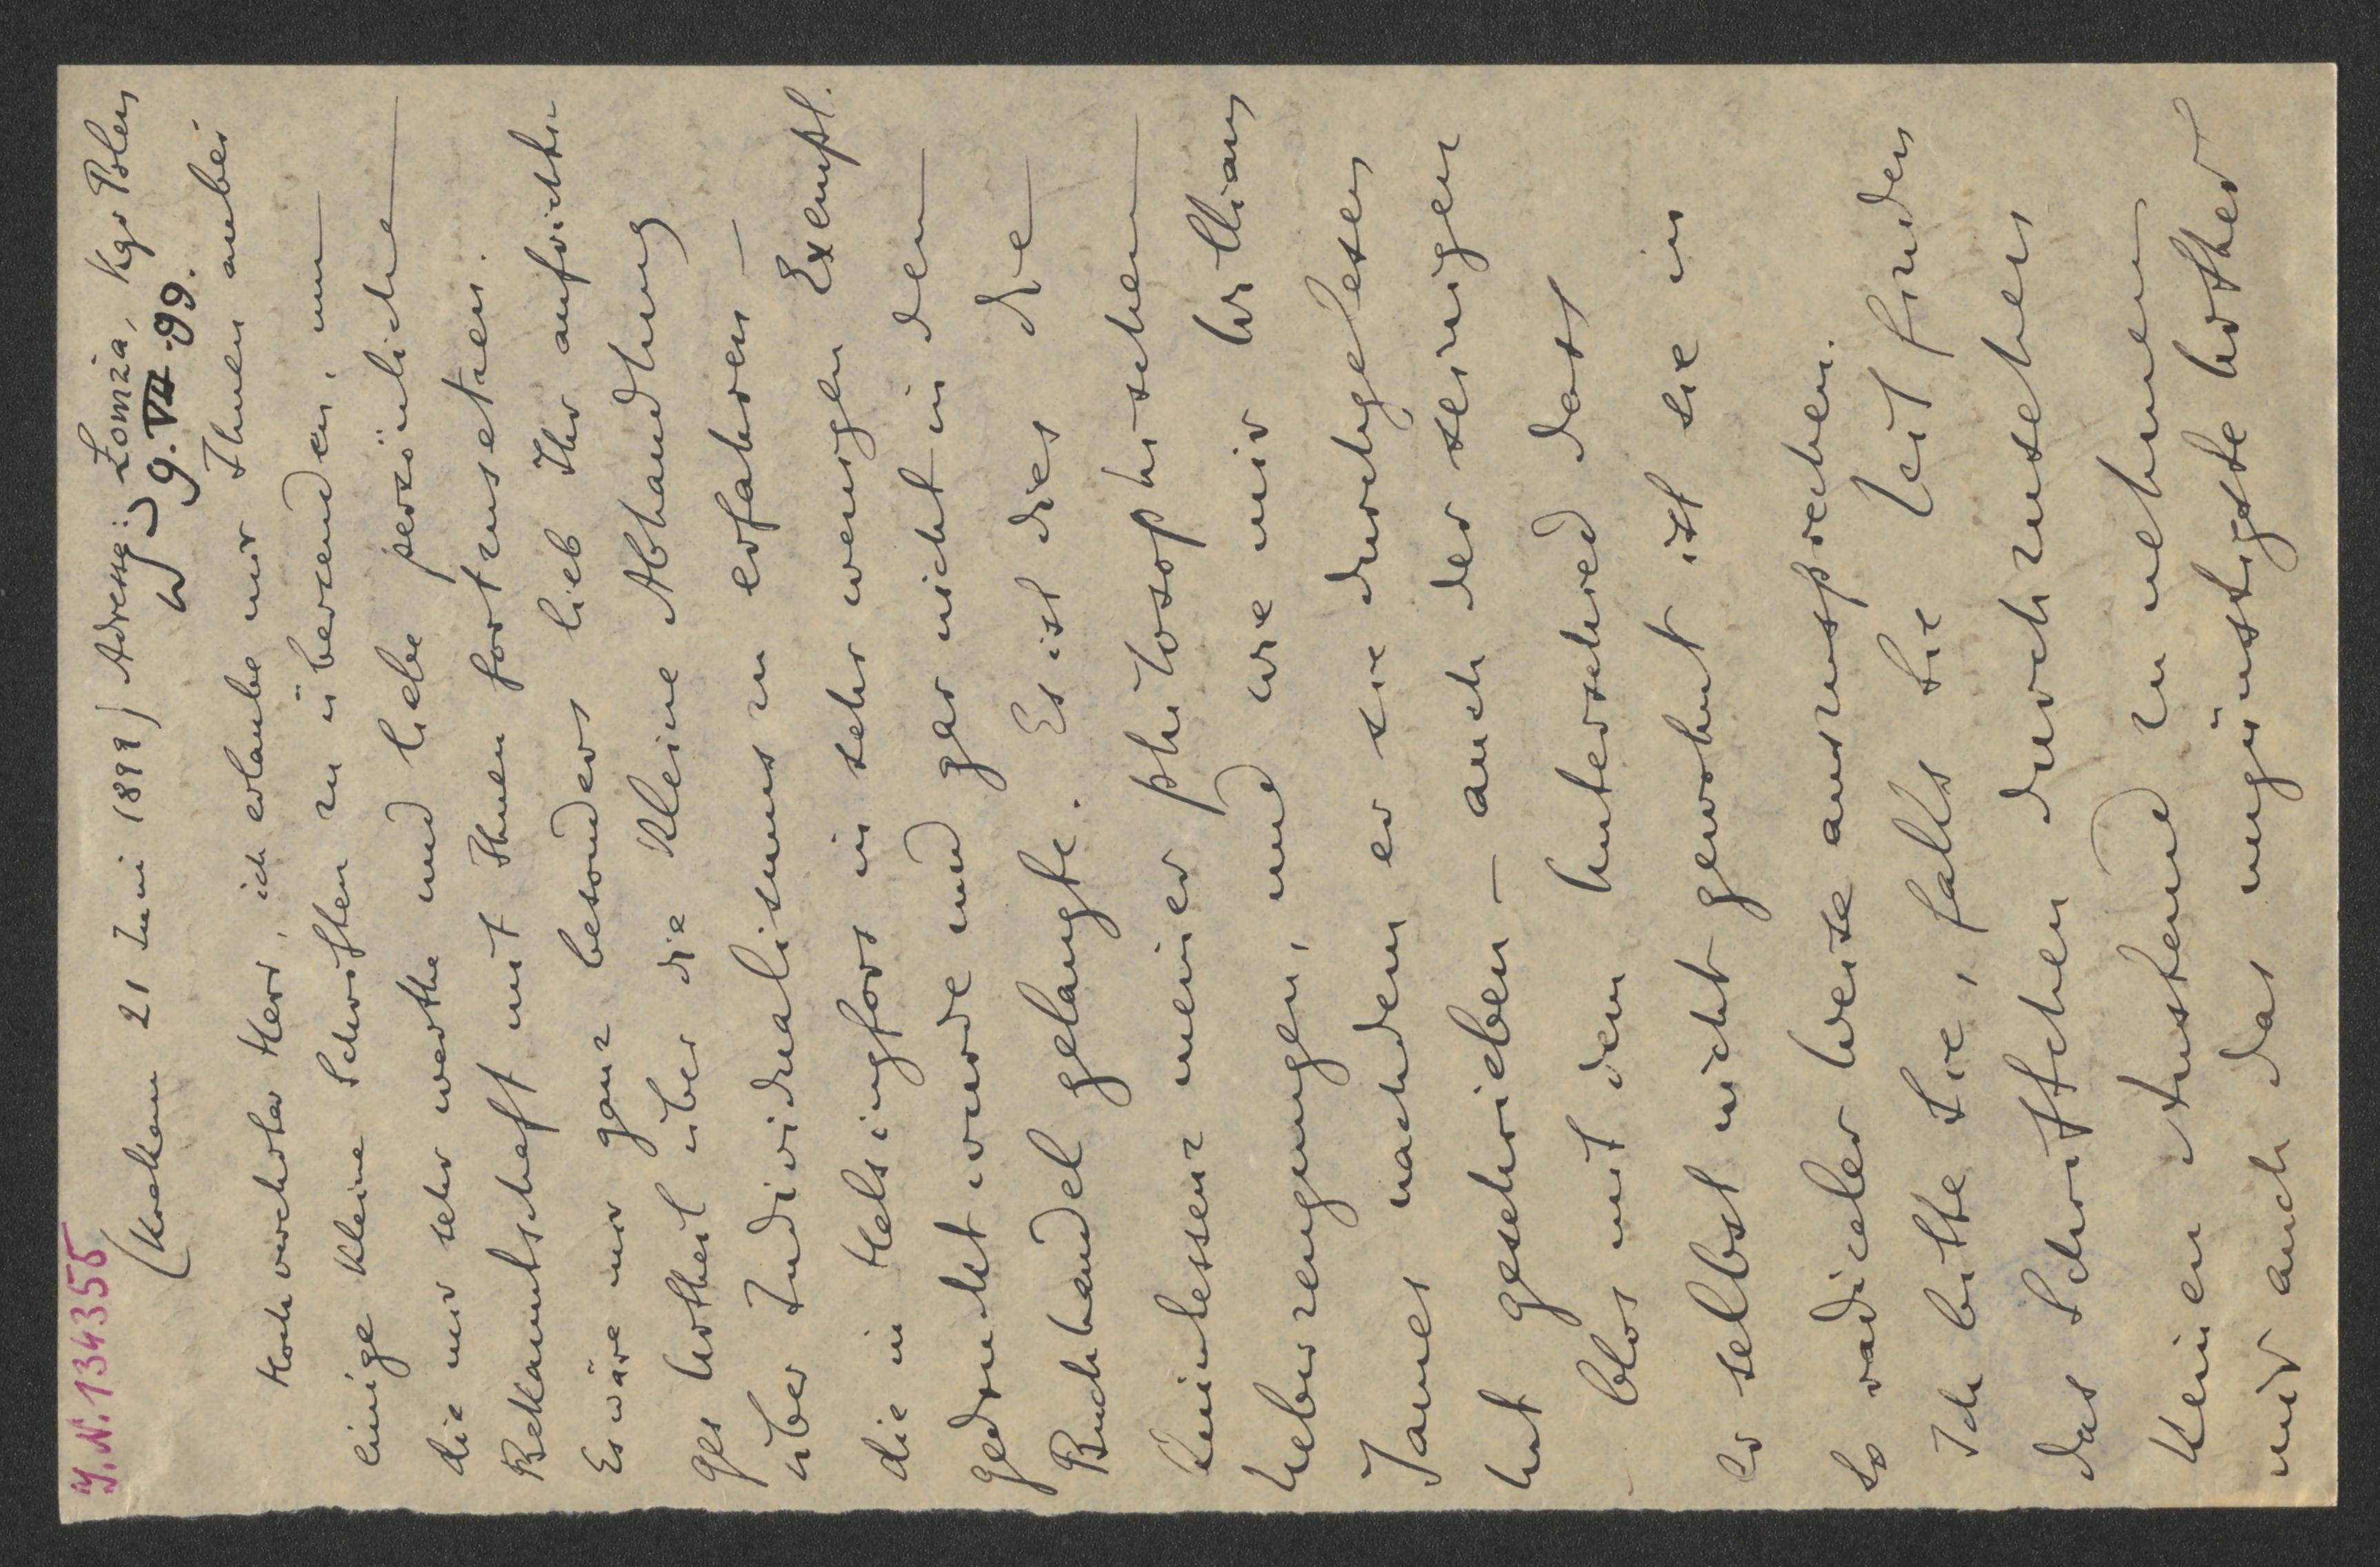 I.N. 134355
(Krakau 21 Juni 1899) Adresse: Łomża, Kgr Polen
W J 9. VII. 99.
Hochverehrter Herr, ich erlaube mir Ihnen anbei
einige kleine Schriften zu übersenden, um
die mir sehr werthe und liebe persönliche
Bekanntschaft mit Ihnen fortzusetzen.
Es wäre mir ganz besonders lieb Ihr aufrichti-
ges Urtheil über die kleine Abhandlung
über Individualismus zu erfahren –
die in Helsingfors in sehr wenigen Exempl.
gedruckt wurde und gar nicht in den
Buchhandel gelangte. Es ist dies die
Quintessenz meiner philosophischen
Ueberzeugungen, und wie mir William
James nachdem er sie durchgelesen
hat geschrieben – auch der seinigen
blos mit dem Unterschied dass
er selbst nicht gewohnt ist sie in
so radicaler Weise auszusprechen.
Ich bitte Sie, falls Sie Zeit finden
das Schriftchen durchzusehen
keinen Anstand zu nehmen
mir auch das ungünstigste Urtheil